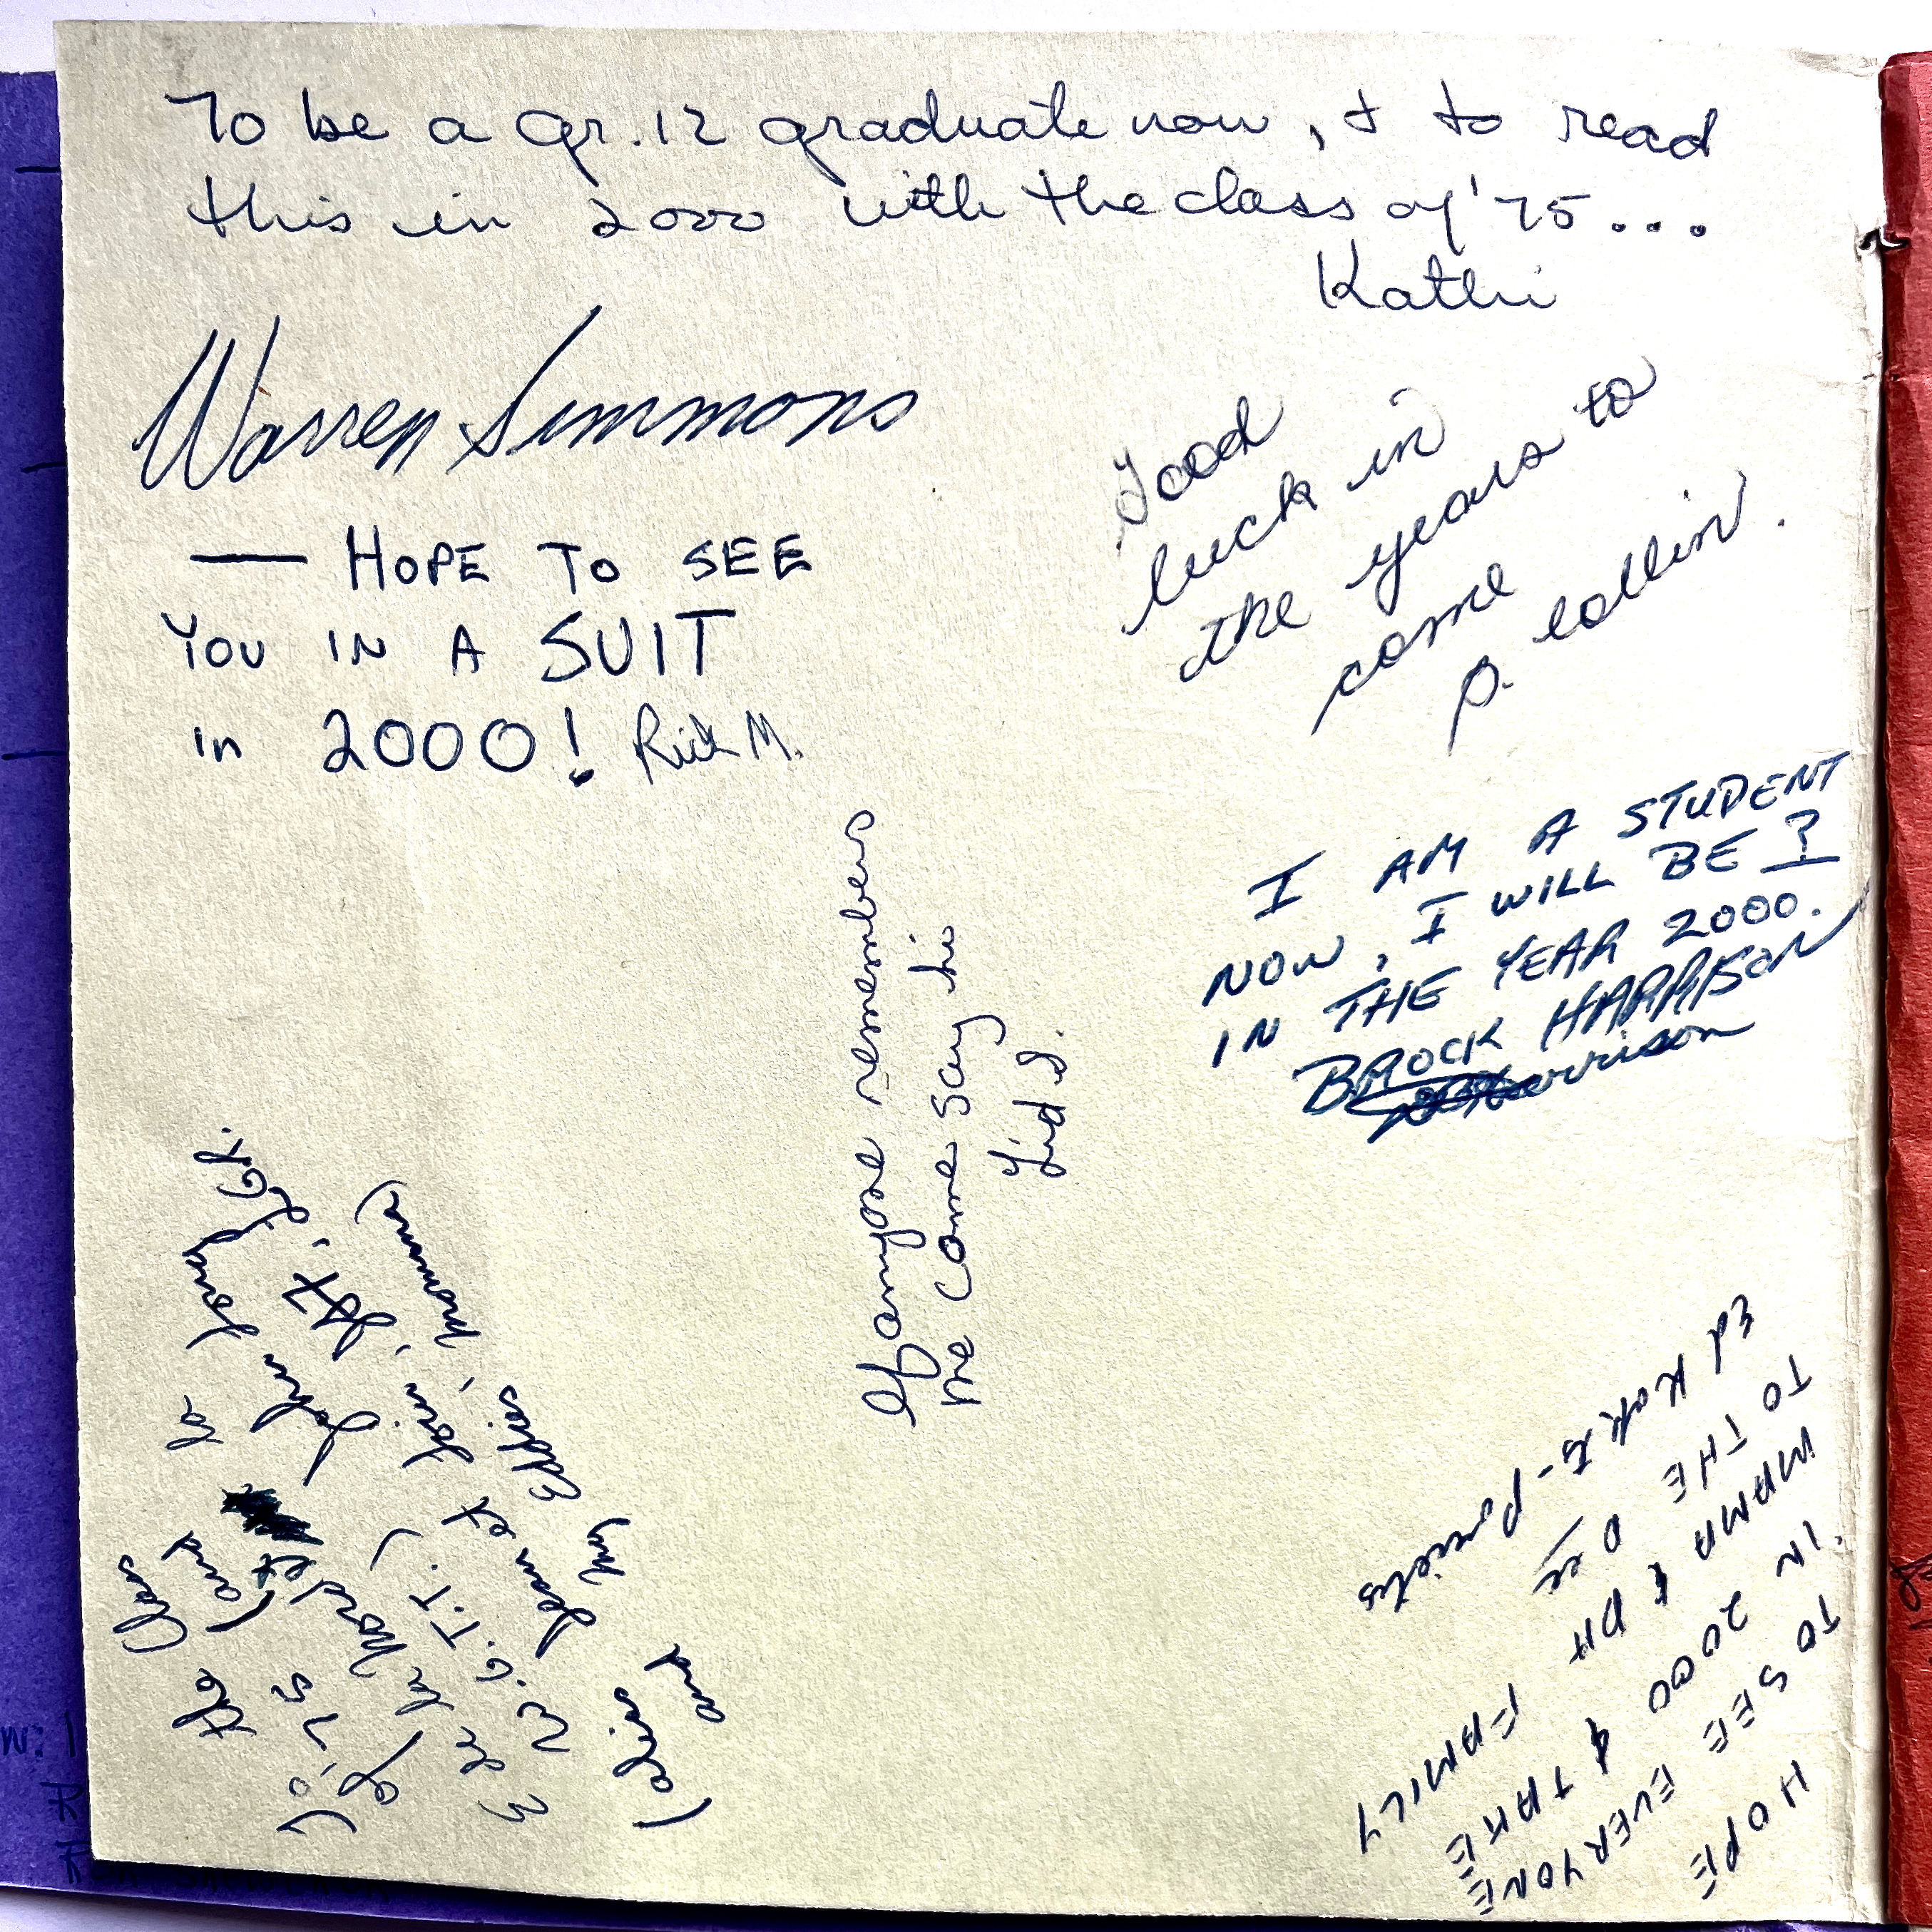 To be a Gr. 12 graduate now, & to read
this in 2000 with the class of '75...
Kathi
Warren Simmons
— HOPE TO SEE
YOU IN A SUIT
in 2000! Rick M.
Good
luck in
the years to
come
p. collin.
I AM A STUDENT
NOW, I WILL BE ?
IN THE YEAR 2000.
BROCK HARRISON
Harrison
If anyone remembers
me come say hi
Lid S.
HOPE
TO SEE EVERYONE
IN 2000 & TAKE
MAMA & PA FAMILY
TO THE
Ed Kok
To the Class
of 75 (and
et
John
W.G.T.T.)
Jean et
(alias Eddies,
and my momma)